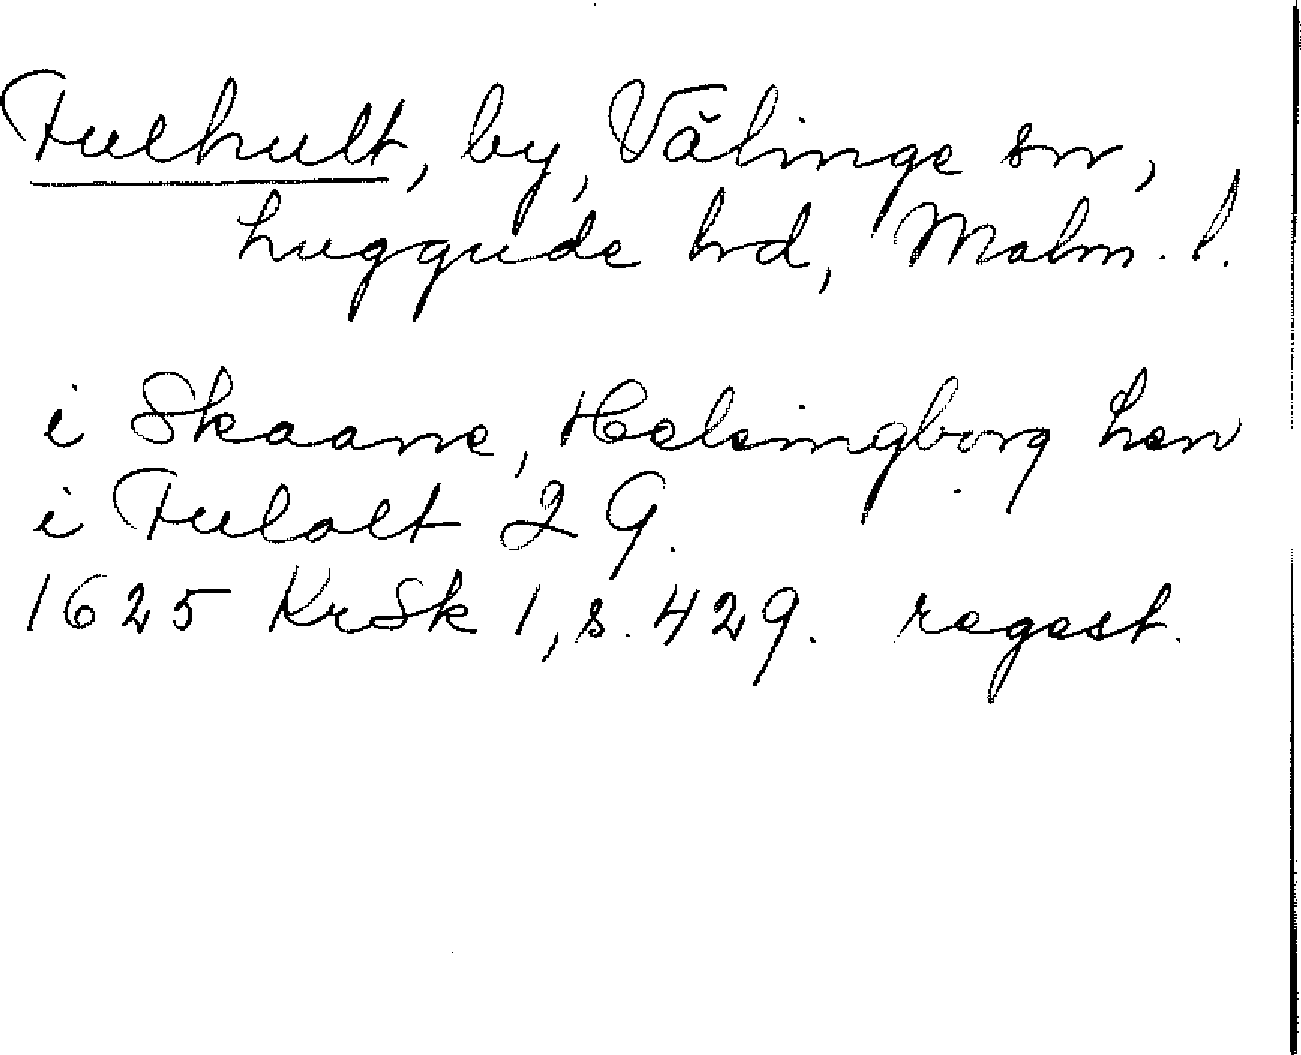 Fulhult, by, Välinge sn,
Luggude hd, Malm. l.
i Skaane, Helsingborg Len
i Fulolt 2 G.
1625 KrSk 1, s. 429. regest.